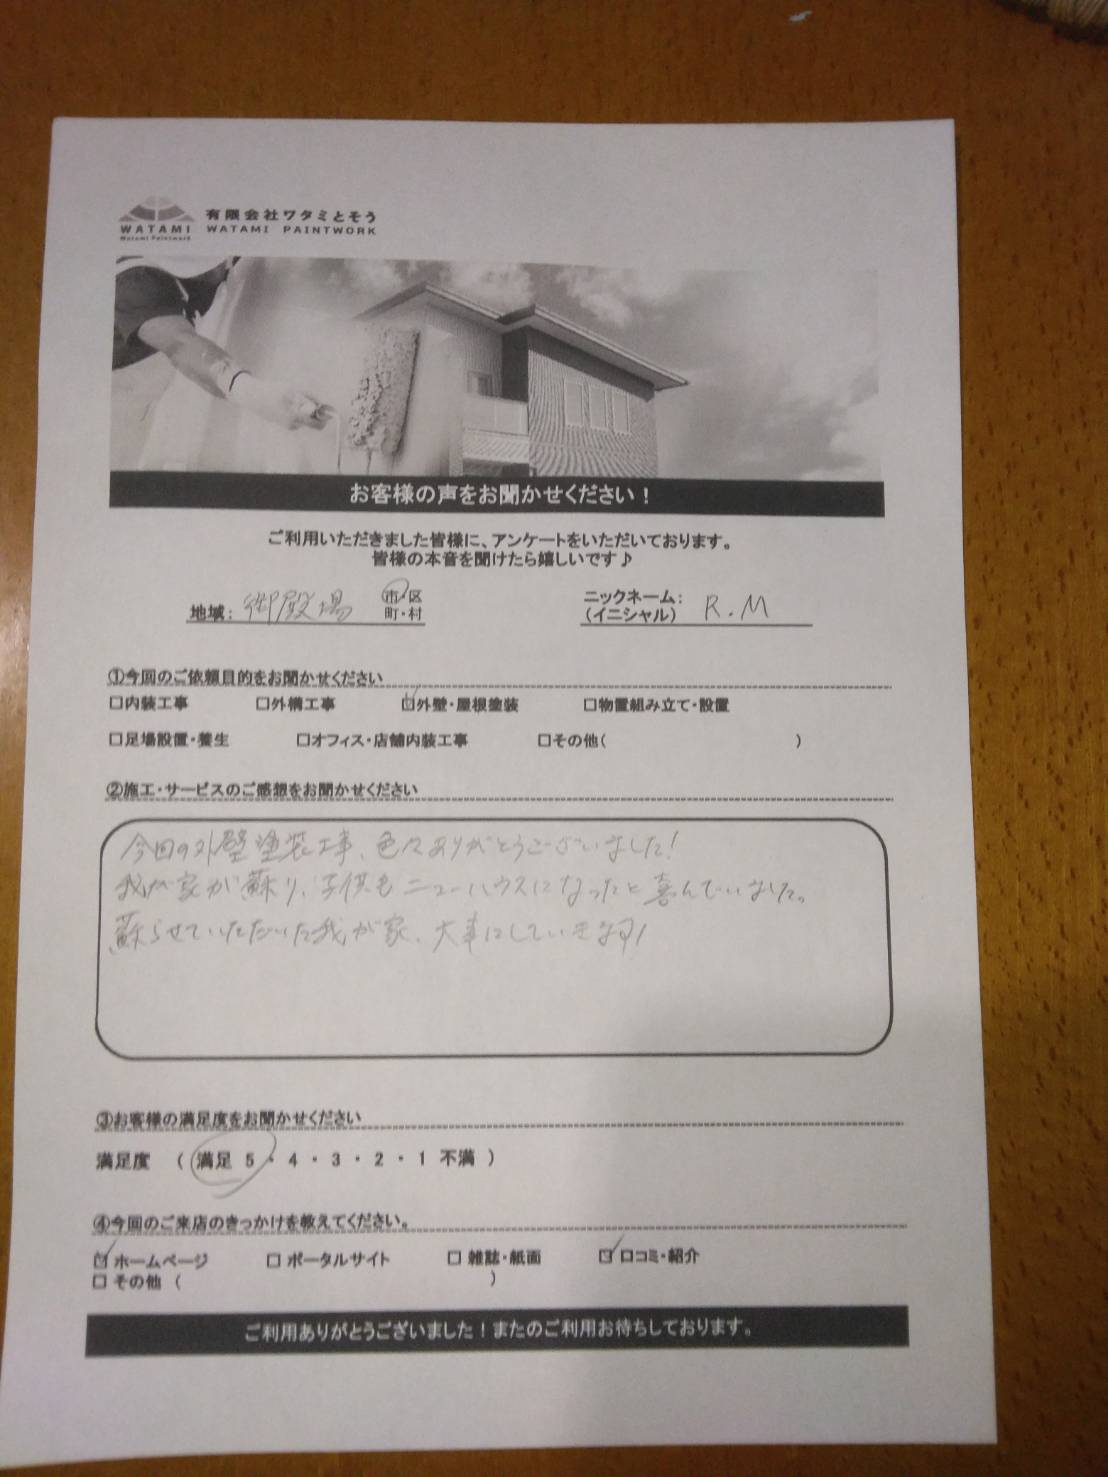 WATAMI
Watami Paintwork
有限会社ワタミとそう
WATAMI PAINTWORK
お客様の声をお聞かせください！
ご利用いただきました皆様に、アンケートをいただいております。
皆様の本音を聞けたら嬉しいです♪
地域： 御殿場 市・区 町・村
ニックネーム：（イニシャル） R.M
①今回のご依頼目的をお聞かせください
□内装工事 □外構工事 ☑外壁・屋根塗装 □物置組み立て・設置
□足場設置・養生 □オフィス・店舗内装工事 □その他( )
②施工・サービスのご感想をお聞かせください
今回の外壁塗装工事、色々ありがとうございました！
我が家が蘇り、子供もニューハウスになったと喜んでいました。
蘇らせていただいた我が家、大事にしていきます！
③お客様の満足度をお聞かせください
満足度 （ 満足 5 ・ 4 ・ 3 ・ 2 ・ 1 不満 ）
④今回のご来店のきっかけを教えてください。
☑ ホームページ □ ポータルサイト □ 雑誌・紙面 ☑ 口コミ・紹介
□ その他 （ ）
ご利用ありがとうございました！またのご利用お待ちしております。